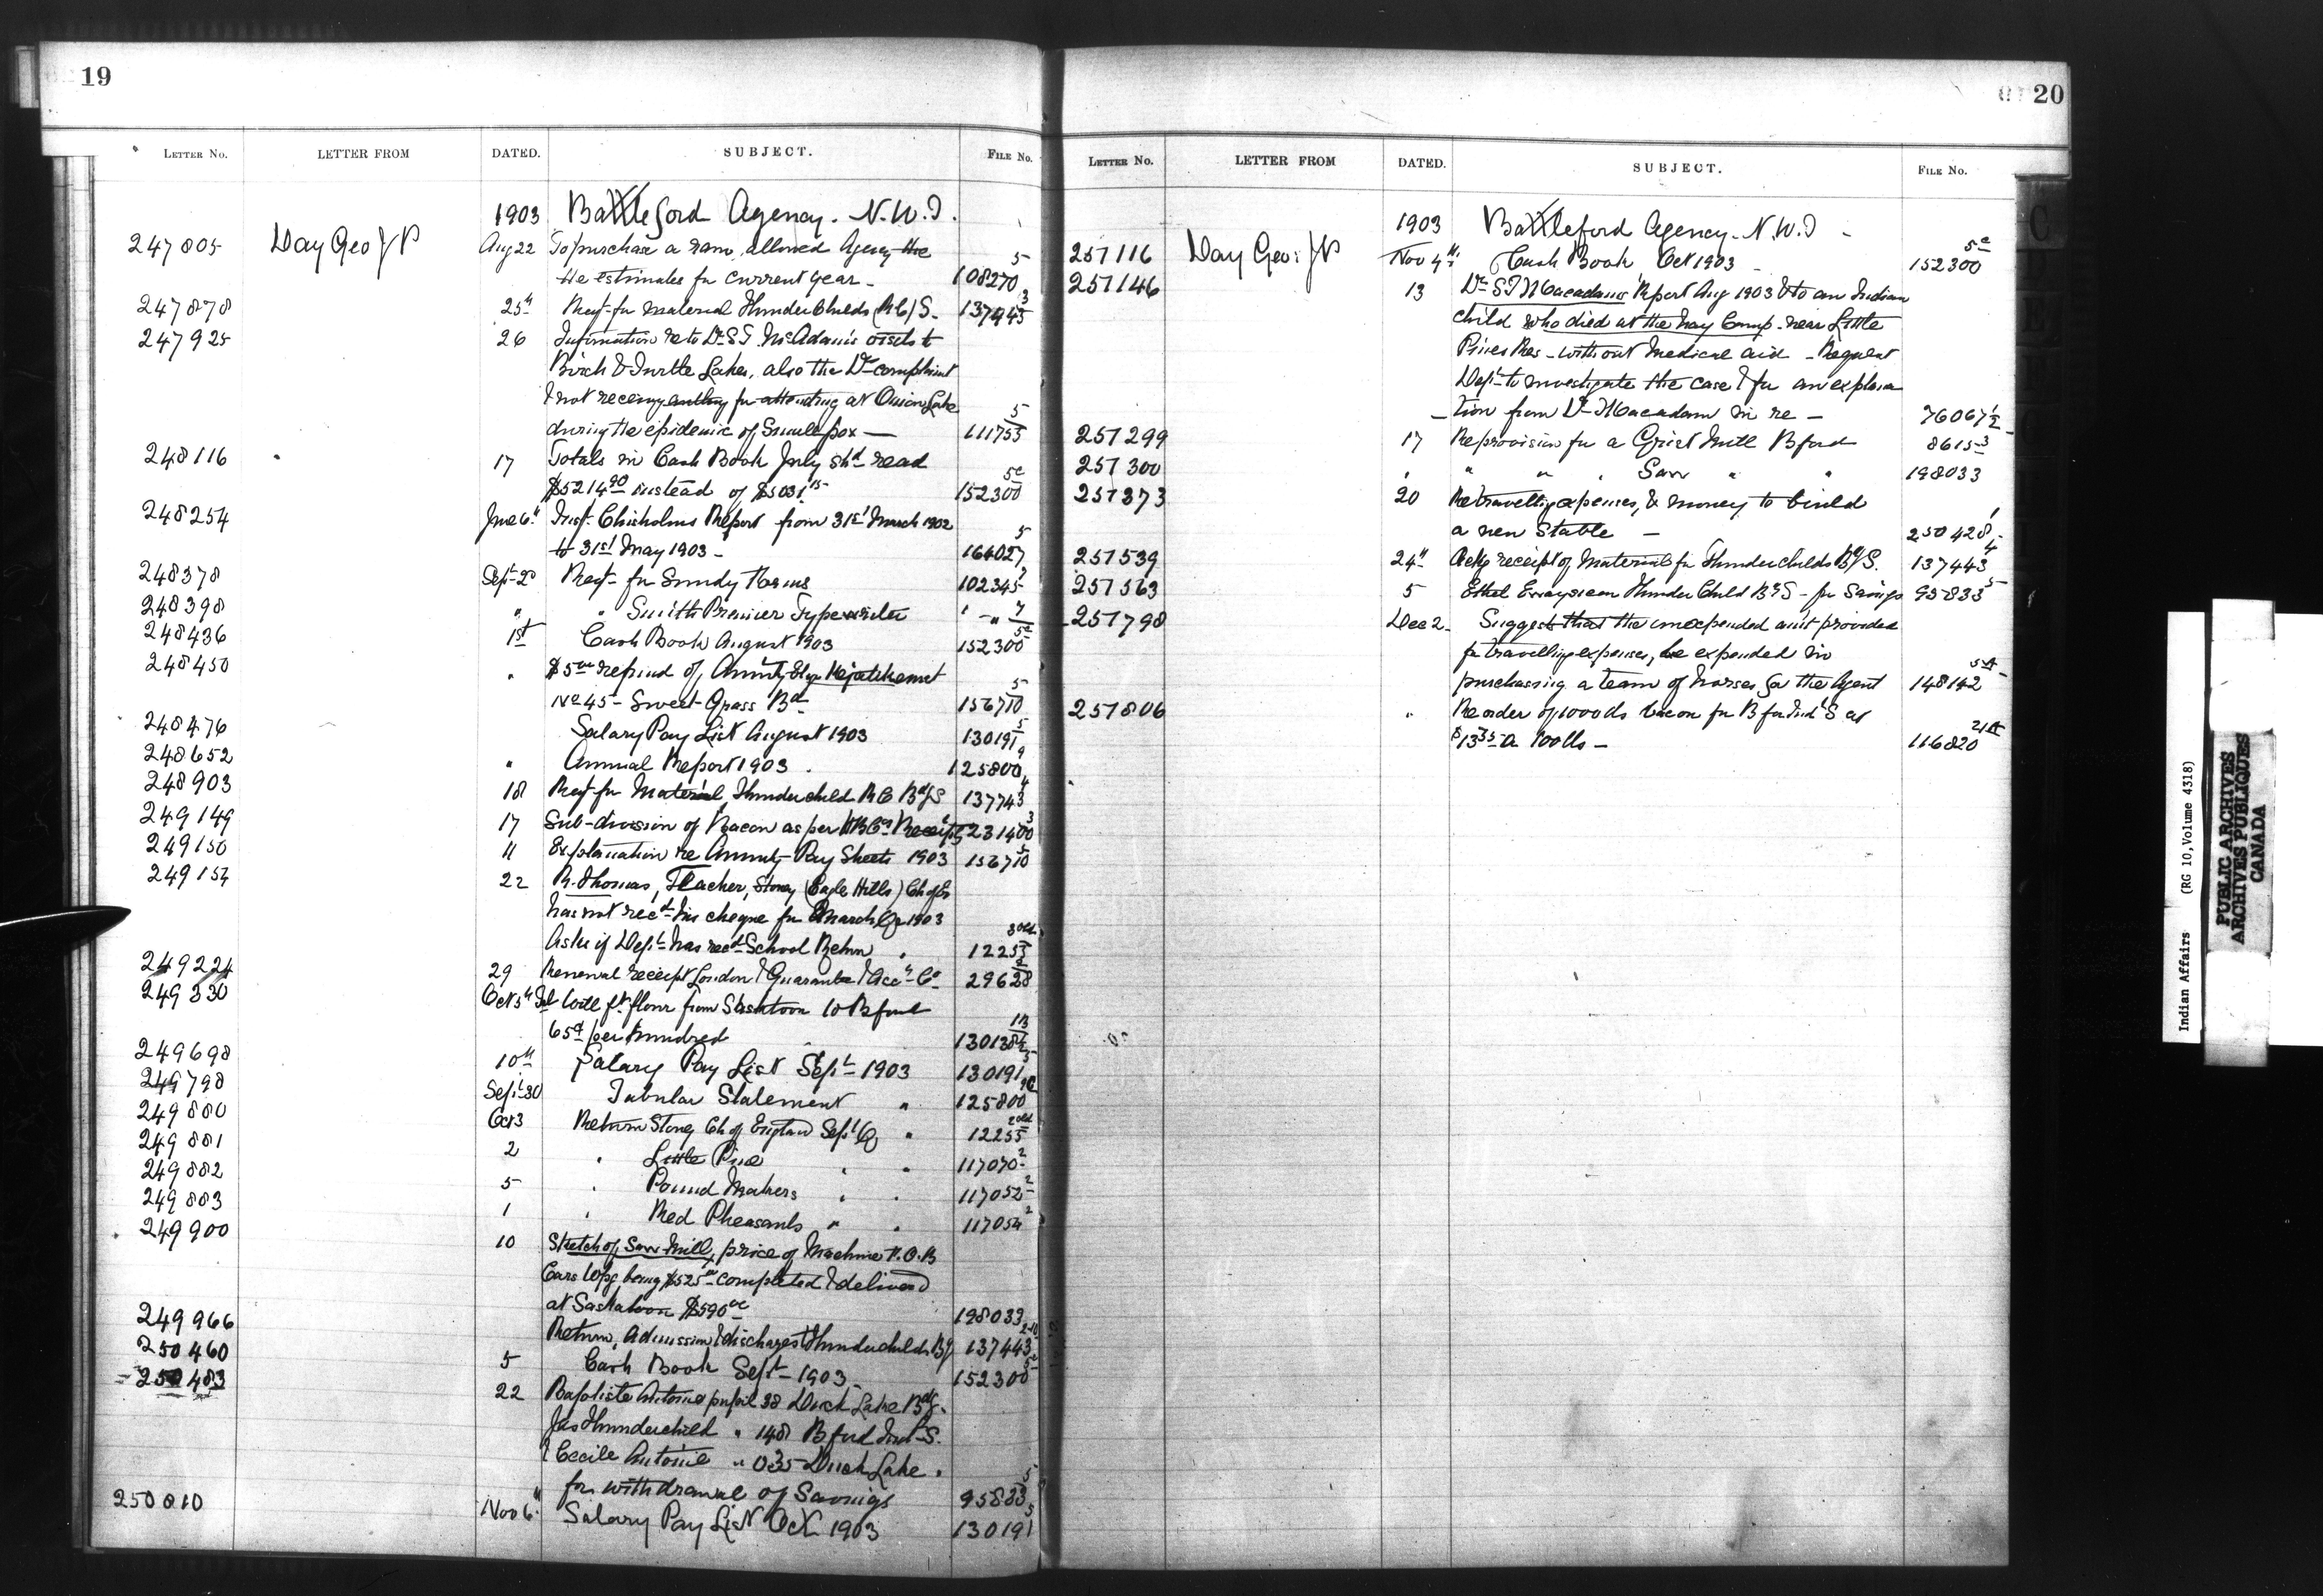 19
LETTER No. LETTER FROM DATED. SUBJECT. FILE No.
1903 Battleford Agency. N.W.T.
247805 Day Geo J P Aug 22 To purchase a ram, allowed Agency the
the estimates for current year - 108270 5
247878 25th Reqt for material Thunderchilds (R C) S. 137443 3
247925 26 Information re to Dr S.T. McAdam's visits to
Birch & Turtle Lakes, also the Dr complaint
& not receiving anything for attending at Onion Lake
during the epidemic of Small pox — 111755 5
248116 17 Totals in Cash Book July shd read
$5214.90 instead of $5031.15 152300 5c
248254 June 6th Insp. Chisholms Report from 31st March 1902
to 31st May 1903 - 164027 5
248378 Sept 2d Reqt for Sundry Forms 102345
248398 " " Smith Premier Typewriter " - "
248436 1st Cash Book August 1903 152300 5c
248450 " $5.00 refund of Annuity
No 45 - Sweet Grass Bd 156710 5
248476 Salary Pay List August 1903 130191 5
248652 " Annual Report 1903 . 125800 9
248903 18 Reqt for Material, Thunderchild R C Bd/S 137743 4
249149 17 Sub-division of Bacon as per H B Co Receipts 231400 3
249150 11 Explanation re Annuity Pay Sheets 1903 156710 5
249157 22 R. Thomas, Teacher, Stoney (Eagle Hills) Ch of E
has not recd his cheque for March Qr 1903
Asks if Dept has recd School Return . 12255 3 old
249224 29 Renewal receipt London & Guarantee & Acc. Co 29628 2
249330 Oct 5th Ind Will ft. flour from Saskatoon to Bford
65¢ per hundred 130138½
249698 10th Salary Pay List Sept 1903 130191 5
249798 Sept 30 Tabular Statement " 125800
249880 Oct 3 Return Stoney Ch of England Sept Q " 12255 2 old
249881 2 " Little Pine " " 117070 2
249882 5 " Pound Makers " " 117052 2
249883 1 " Red Pheasants " " 117054 2
249900 10 Sketch of Saw Mill, price of Machine F.O.B
Cars Wpg being $525.00 completed & delivered
at Saskatoon $590.00 198033
249966 Return, Admission & discharges Thunderchilds Bg 137443
250460 5 Cash Book Sept 1903 - 152300 5c
250483 22 Baptiste Antoine pupil 38 Duck Lake Bdg.
Jas Thunderchild " 148 Bford Ind S.
& Cecile Antoine " 035 Duck Lake .
for withdrawal of Savings 95833 5
250810 Nov 6th Salary Pay List Oct 1903 130191 5
20
LETTER No. LETTER FROM DATED. SUBJECT. FILE No.
1903 Battleford Agency - N.W.T -
251116 Day Geo: J P Nov 4th Cash Book Oct 1903 - 152300 5c
251146 13 Dr S T Macadams Report Aug 1903 & to an Indian
child who died at the hay Camp - near Little
Pines Res - without medical aid - Request
Dept to investigate the case & for an explana
- tion from Dr Macadam in re - 76067½
251299 17 Re provision for a Grist Mill Bford 8615 3
251300 " " " " Saw " " 198033
251373 20 Re travelling expenses, & money to build
a new Stable — 250428 1
251539 24th Ackg receipt of Material for Thunderchilds Bg/S. 137443 4
251563 5 Ethel Thunder Child Bg S - for Savings 95833 5
251798 Dec 2 - Suggests that the unexpended amt provided
for travelling expenses, be expended in
purchasing a team of horses for the Agent 148142
251806 " Re order of 1000 lbs bacon for Bford Ind S at
$13.35 a 100 lbs — 116820
Indian Affairs (RG 10, Volume 4318)
PUBLIC ARCHIVES
ARCHIVES PUBLIQUES
CANADA